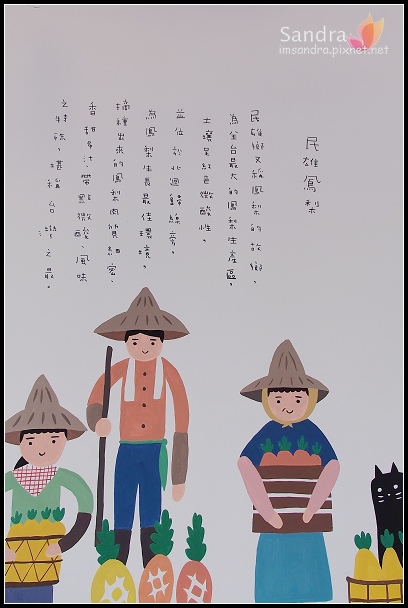 Sandra
imsandra.pixnet.net
民雄鳳梨
民雄鄉又稱鳳梨的故鄉。
為全台最大的鳳梨生產區。
土壤呈紅色微酸性。
並位於北迴歸線旁。
為鳳梨生長最佳環境。
摘種出來的鳳梨肉質細密、
香甜多汁、帶點微酸、風味
之特殊。堪稱台灣之最。